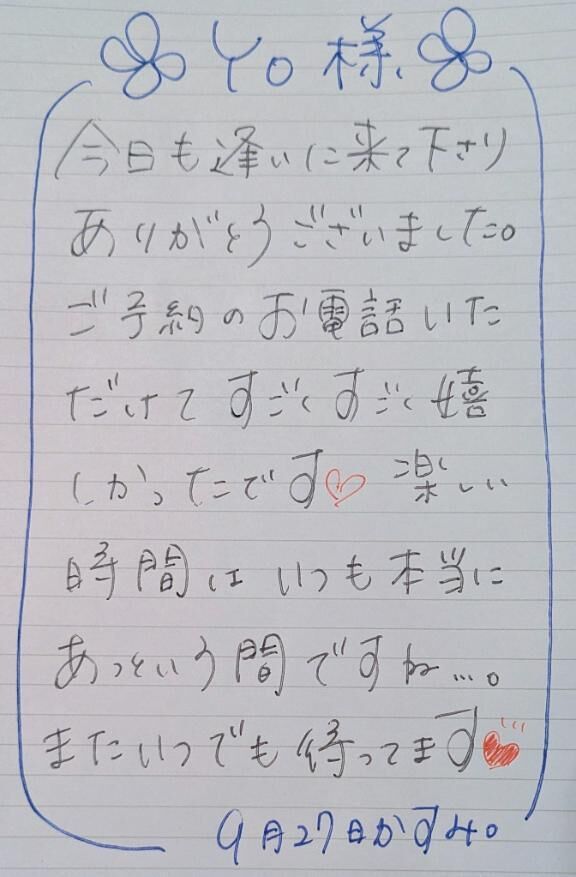 Yo 様
今日も逢いに来て下さり
ありがとうございました。
ご予約のお電話いた
だけてすごくすごく嬉
しかったです♡ 楽しい
時間はいつも本当に
あっという間ですね…。
またいつでも待ってます♥
9月27日かすみ。